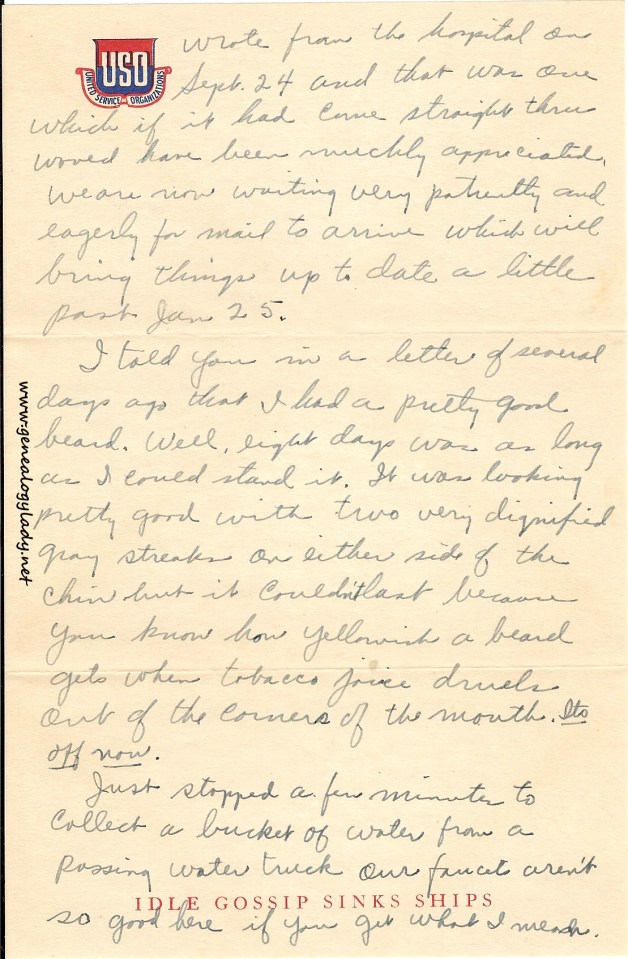 USO
UNITED SERVICE ORGANIZATIONS
wrote from the hospital on
Sept. 24 and that was one
which if it had come straight thru
would have been muchly appreciated.
We are now waiting very patiently and
eagerly for mail to arrive which will
bring things up to date a little
past Jan 25.
I told you in a letter of several
days ago that I had a pretty good
beard. Well, eight days was as long
as I could stand it. It was looking
pretty good with two very dignified
gray streaks on either side of the
chin but it couldn't last because
you know how yellowish a beard
gets when tobacco joice drools
out of the corners of the mouth. Its
off now.
Just stopped a few minutes to
collect a bucket of water from a
passing water truck our faucets aren't
so good here if you get what I mean.
IDLE GOSSIP SINKS SHIPS
www.genealogylady.net